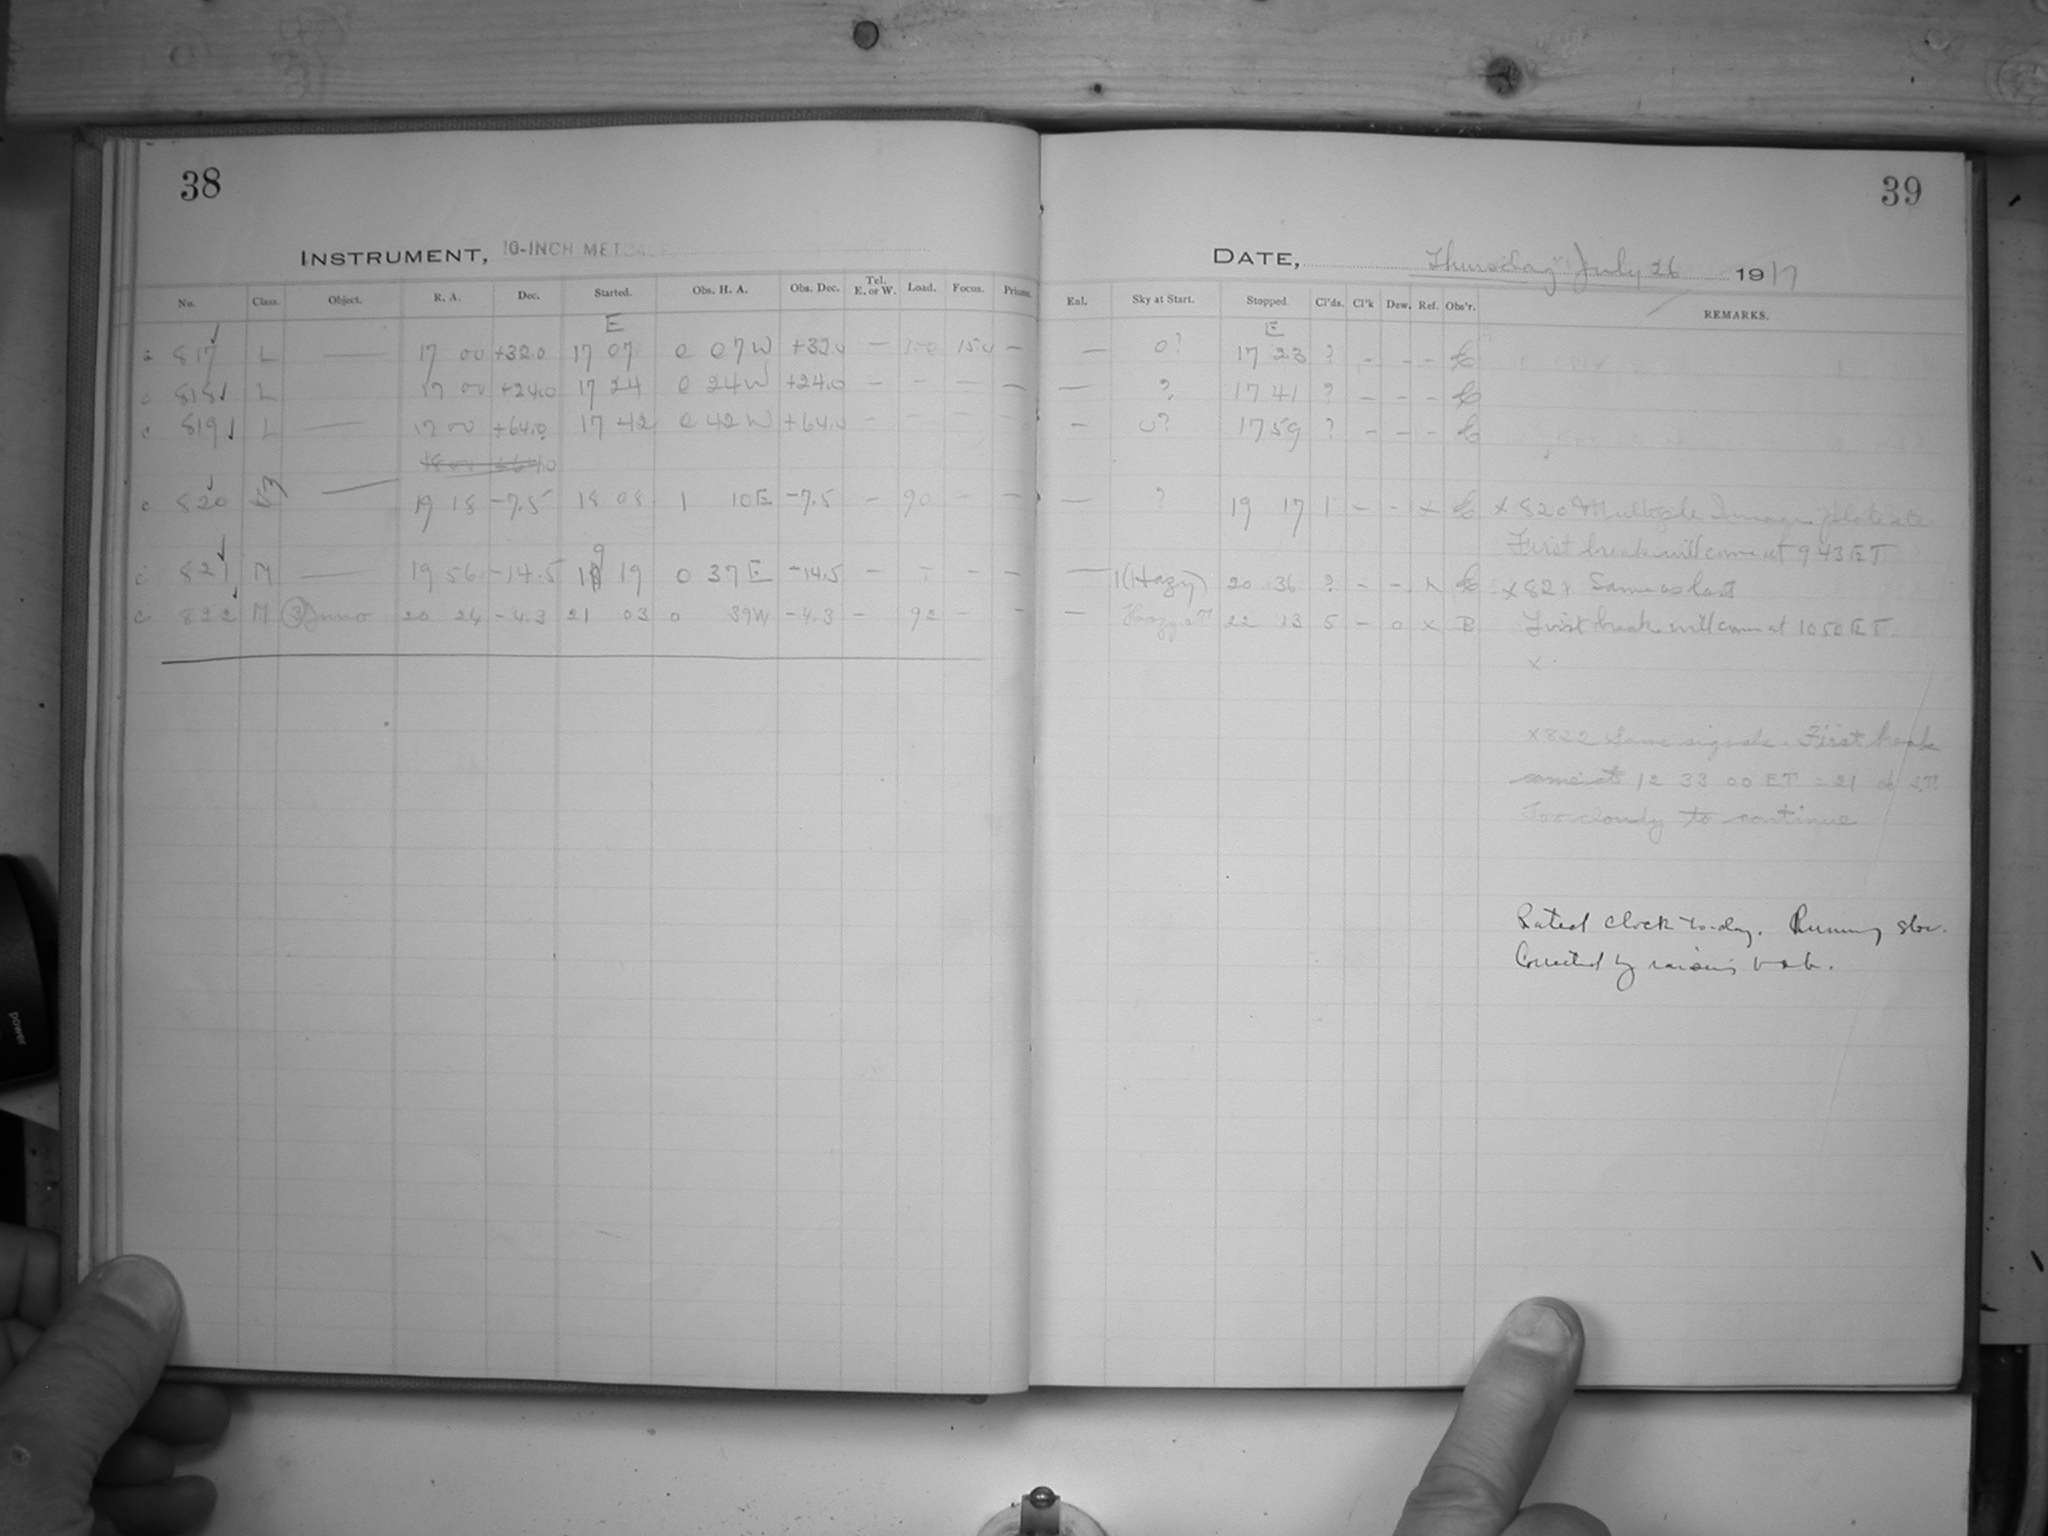 38
INSTRUMENT, 10-INCH MET
No. Class. Object. R. A. Dec. Started. Obs. H. A. Obs. Dec. Tel. E. or W. Load. Focus. Prisms.
E
817 L — 17 00 +32.0 17 07 0 07W +32.0 — 150 15.0 —
c 818 L 17 00 +24.0 17 24 0 24W +24.0 — — — —
c 819 L — 17 00 +64.0 17 42 0 42W +64.0 — — — —
c 820 — 19 18 -7.5 18 08 1 10E -7.5 — 90 — —
821 M — 19 56 -14.5 19 19 0 37E -14.5 — — — —
c 822 M (3) Juno 20 24 -4.3 21 03 0 39W -4.3 — 92 — -
39
DATE, Thursday July 26 1917
Enl. Sky at Start. Stopped Cl'ds. Cl'k Dew. Ref. Obs'r. REMARKS.
E
— 0? 17 23 ? - - -
— ? 17 41 ? - - -
— 0? 17 59 ? - - -
— ? 19 17 1 - - x x 820 Multiple Images
First break will come at 9 43 E T
— 1(Hazy) 20 36 ? - - x x 821 Same as last
— 22 13 5 - 0 x B First break will come at 10 50 E T.
x
x 822 Same signals. First break
came at 12 33 00 ET = 21 06 S.T.
Too cloudy to continue
Rated clock to-day. Running slow.
Corrected by raising bob.
power